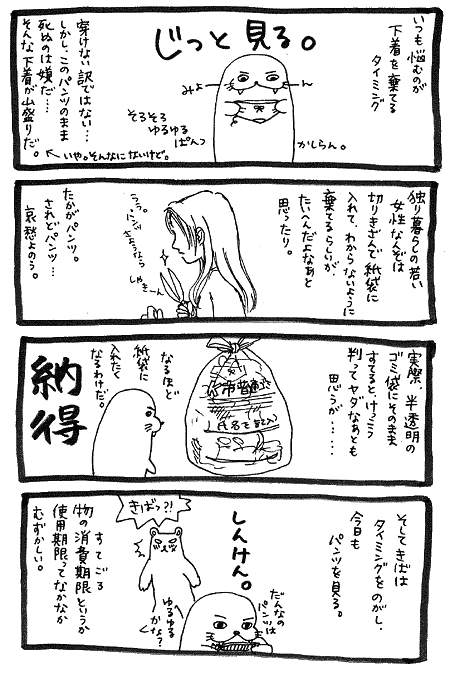 いつも悩むのが
下着を棄てる
タイミング
じっと見る。
みょーん
そろそろ
ゆるゆる
ぱんつ
かしらん。
穿けない訳ではない…
しかし、このパンツのまま
死ぬのは嫌だ…
そんな下着が山盛りだ。
←いや。そんなにないけど。
独り暮らしの若い
女性なんぞは
切りきざんで紙袋に
入れて、わからないように
棄てるらしいが、
たいへんだよなあと
思ったり。
うう。
パンツ
さようなら
しゃきーん
たかがパンツ。
されどパンツ…
哀愁よのう。
実際、半透明の
ゴミ袋にそのまま
すてると、けっこう
判ってヤダなあとも
思うが……
氏名を記入
なるほど
紙袋に
入れたく
なるわけだ。
納得
そしてきばは
タイミングをのがし、
今日も
パンツを見る。
しんけん。
だんなの
パンツは
ゆるゆる
かな?
きばっ?!
すてごろ
物の消費期限というか
使用期限ってなかなか
むずかしい。